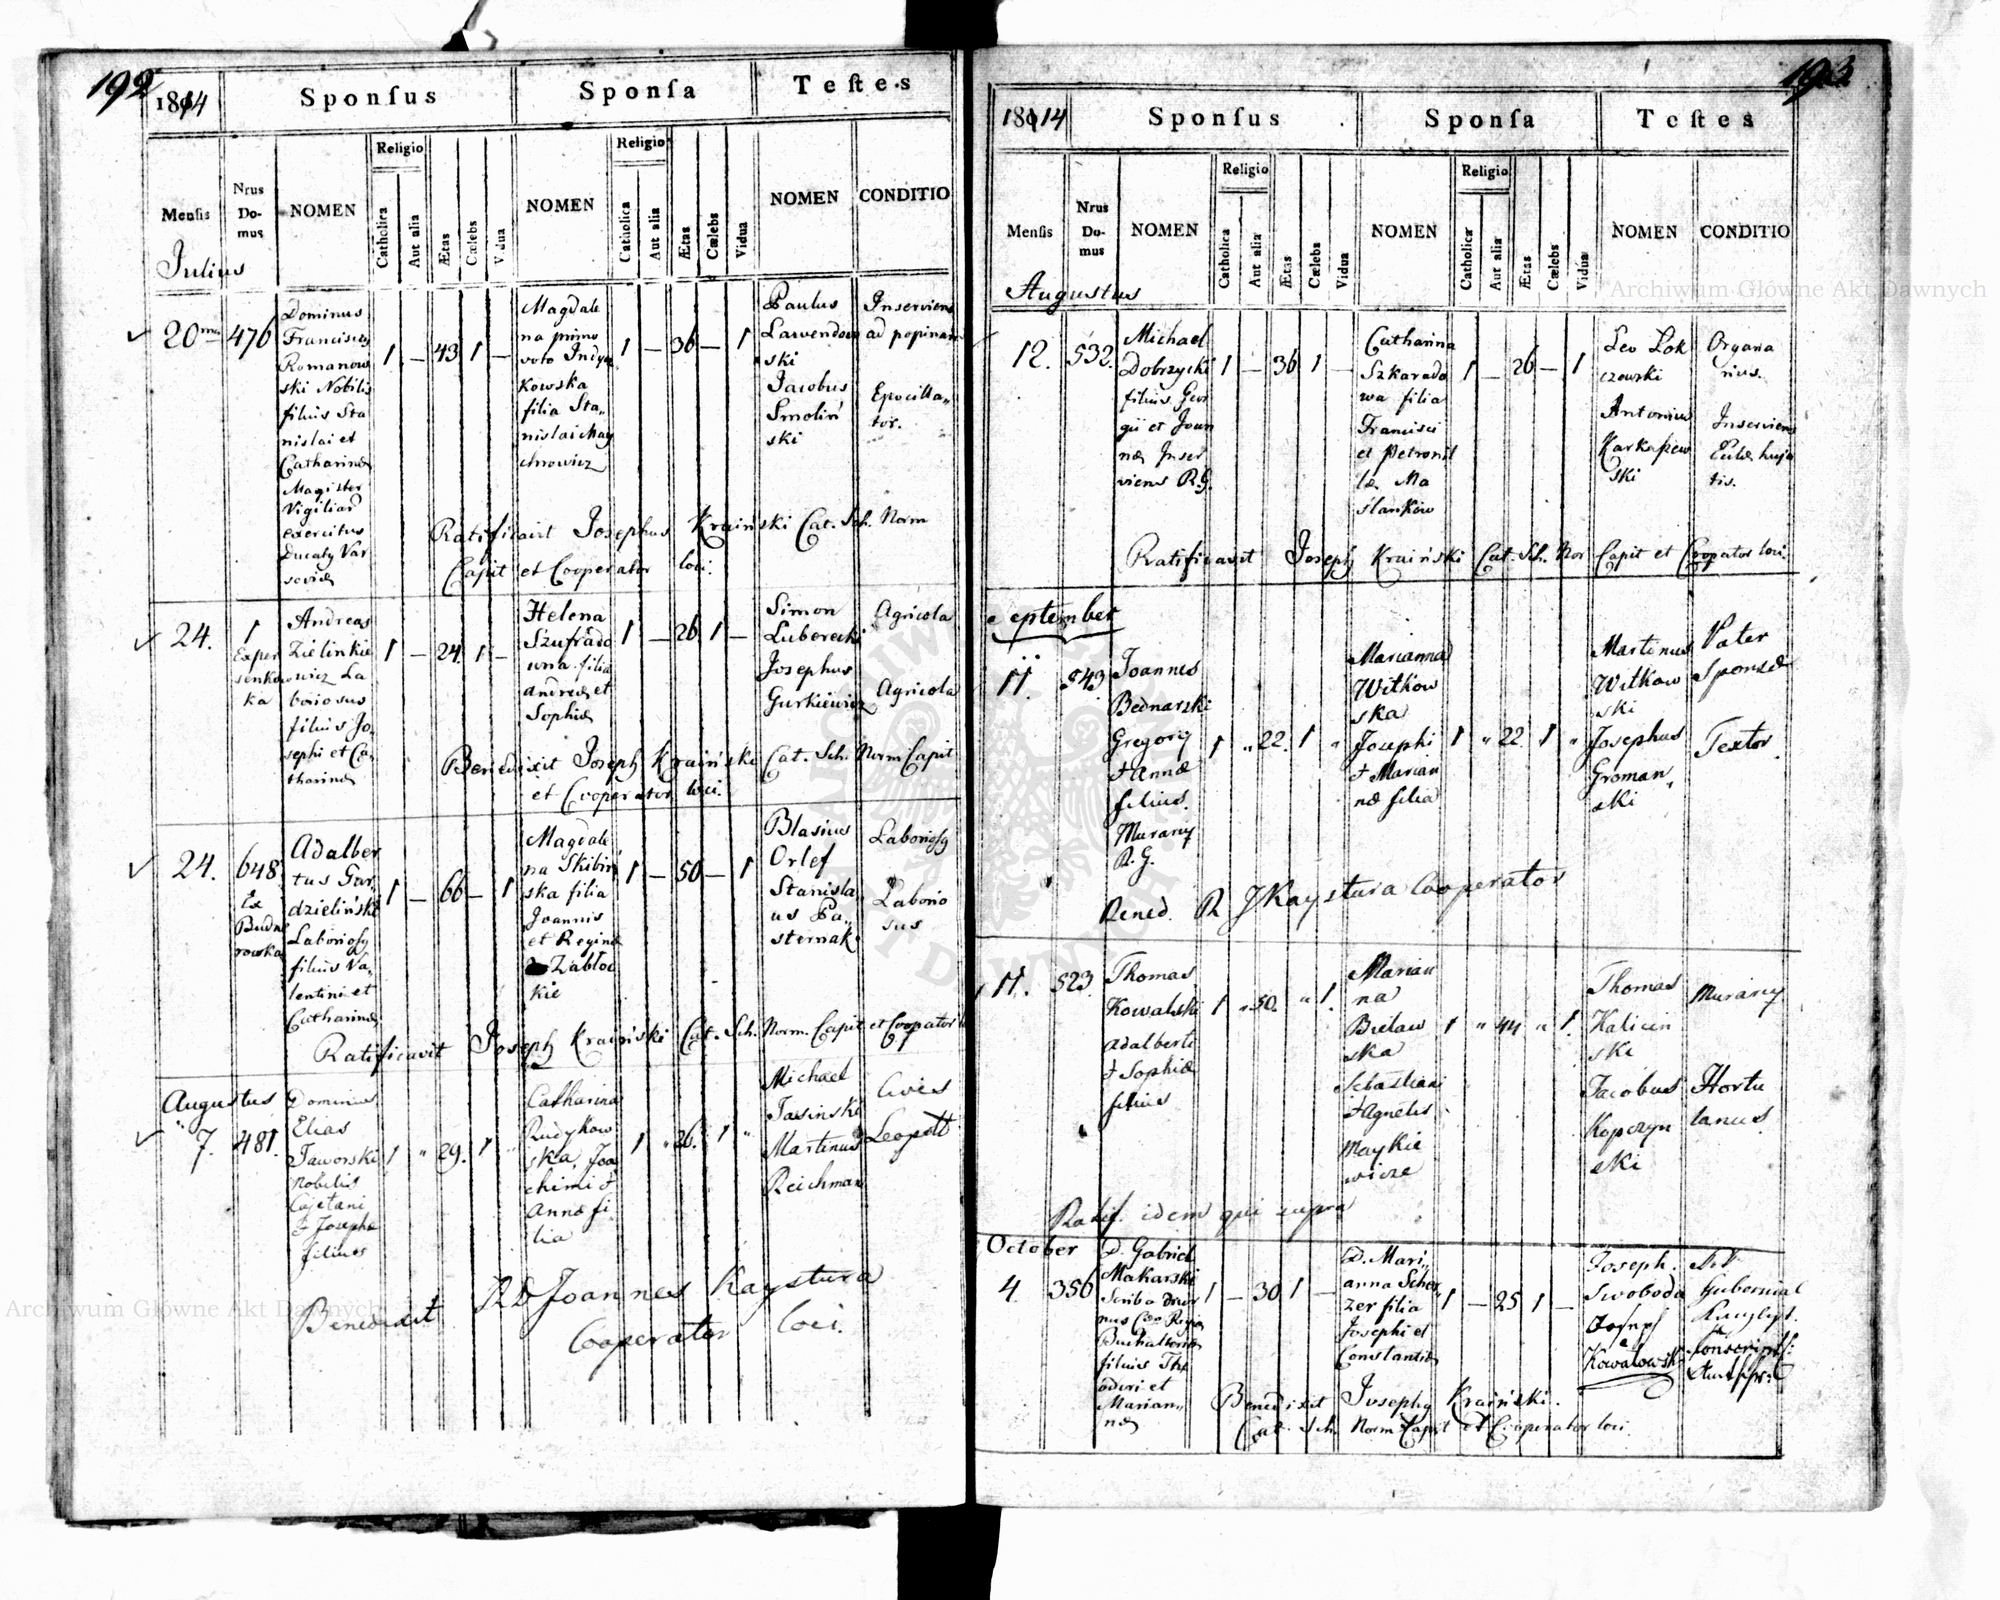 192
1814
Sponſus
Sponſa
Teſtes
Menſis
Nrus Do-mus
NOMEN
Religio
Catholica
Aut alia
Ætas
Cælebs
Vidua
NOMEN
Religio
Catholica
Aut alia
Ætas
Cælebs
Vidua
NOMEN
CONDITIO
Julius
20ma 476
Dominus
Franciscus
Romanow
ski Nobilis
filius Sta
nislai et
Catharinæ
Magister
Vigiliar
exercitus
Ducaty Var
soviæ
1 — 43 1 —
Magdale
na primo
voto
kowska
filia Sta„
nislai May
chrowicz
1 — 36 — 1
Paulus
Lawendow
ski
Jacobus
Smoliń
ski
Inserviens
ad popinam
Epocilla„
tor.
Ratificavit Josephus Kraiński Cat. Sch. Norm
Capit et Cooperator loci.
24. 1
Exper
senkow
ka
Andreas
Zielinkie
wicz La
boriosus
filius Jo
sephi et Ca
tharinæ
1 — 24. 1 —
Helena
Szufrado
wna filia
Andreæ et
Sophiæ
1 — 26 1 —
Simon
Luberecki
Josephus
Gurkiewicz
Agricola
Agricola
Benedixit Joseph Kraiński Cat. Sch. Norm Capit
et Cooperator loci.
24. 648
Ex
Budna
rowka
Adalber
tus Gar
dzieliński
Laboriosy
filius Va„
lentini et
Catharinæ
1 — 66 — 1
Magdale
na Skibiń
ska filia
Joannis
et Reginæ
Zabłoc
kie
1 — 50 — 1
Blasius
Orlef
Stanisla
us Pa„
sternak
Laboriosy
Laborio
sus
Ratificavit Joseph Kraiński Cat. Sch. Norm. Capit et Coopator
Augustus
7. 481.
Dominus
Elias
Jaworski
Nobilis
Cajetani
& Josepha
filius
1 „ 29. 1 „
Catharina
Rudykow
ska, Joa
chimi &
Annæ fi
lia
1 „ 26. 1 „
Michael
Jasinski
Martinus
Reichman
Cives
Leopoli
Benedixit RD Joannes Kaystura
Cooperator loci.
193
1814
Sponſus
Sponſa
Teſtes
Menſis
Nrus Do-mus
NOMEN
Religio
Catholica
Aut alia
Ætas
Cælebs
Vidua
NOMEN
Religio
Catholica
Aut alia
Ætas
Cælebs
Vidua
NOMEN
CONDITIO
Augustus
12. 532.
Michael
Dobrzycki
filius Geor
gii et Joan
næ Inser
viens R.G.
1 — 36 1 —
Catharina
Szkarado
wa filia
Francisci
et Petronil
læ Ma
slankow
1 — 26 — 1
Leo Lok
czewski
Antonius
Karkaszew
ski
Organa
rius.
Inserviens
Eccle huja
tis.
Ratificavit Joseph Kraiński Cat. Sch. Nor Capit et Cropator loci.
September
11. 543
Joannes
Bednarski
Gregory
& Annæ
filius.
Murariy
R.G.
1 „ 22. 1 „
Marianna
Witkow
ska
Josephi
& Marian
næ filia
1 „ 22. 1 „
Martinus
Witkow
ski
Josephus
Groman„
ski
Pater
Sponsæ
Textor.
Bened. R JKaystura Cooperator
11. 523.
Thomas
Kowalski
Adalberti
& Sophiæ
filius
1 „ 50. „ 1.
Marian
na
Bielaw
ska
Sebastiani
& Agnetis
Maykie
wicze
1 „ 44 „ 1.
Thomas
Halicin
ski
Jacobus
Kopczyn
ski
Murariy
Hortu
lanus
Ratif. idem qui supra
October
4. 356
D. Gabriel
Makarski
Scriba
Buchalterie
filius The
odori et
Marian„
næ
1 — 30 1 —
D. Mari„
anna Scher
zer filia
Josephi et
Constantiæ
1 — 25 1 —
Joseph.
Swoboda
Joseph
Kowalowski
Gubernial
Kanzlyst.
Conscripts:
Benedixit Josephy Kraiński.
Cat. Sch. Norm Capit et Cooperator loci.
Archiwum Główne Akt Dawnych
Archiwum Główne Akt Dawnych